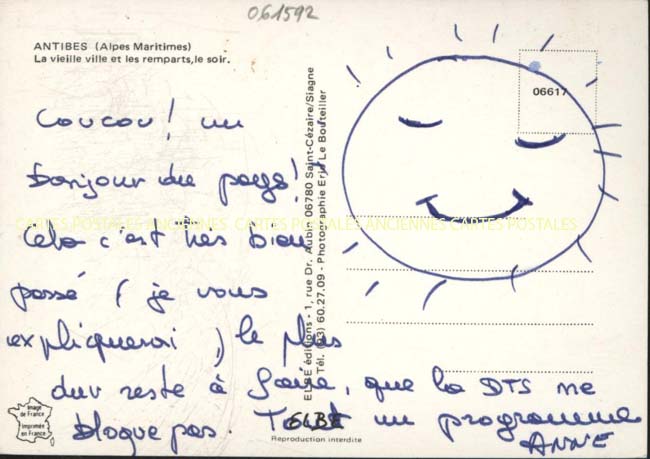 061592
ANTIBES (Alpes Maritimes)
La vieille ville et les remparts, le soir.
06617
Coucou ! un
bonjour du pays !
Cela c'est très bien
passé ( je vous
expliquerai ) le plus
dur reste à faire, que la DTS ne
bloque pas. Tout un programme
ANNE
CARTES POSTALES ANCIENNES CARTES POSTALES ANCIENNES CARTES POSTALES
ELBE éditions - 1, rue Dr. Aubin 06780 Saint-Cézaire/Siagne
Tél. (93) 60.27.09 - Photographie Eric Le Bouteiller
Image
de France
Imprimée
en France
ELBE
Reproduction interdite